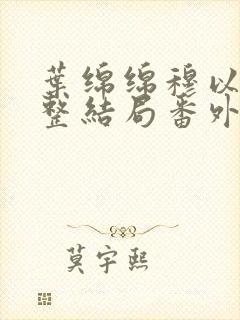 葉綿綿穆以
整結局番外
莫宇熙